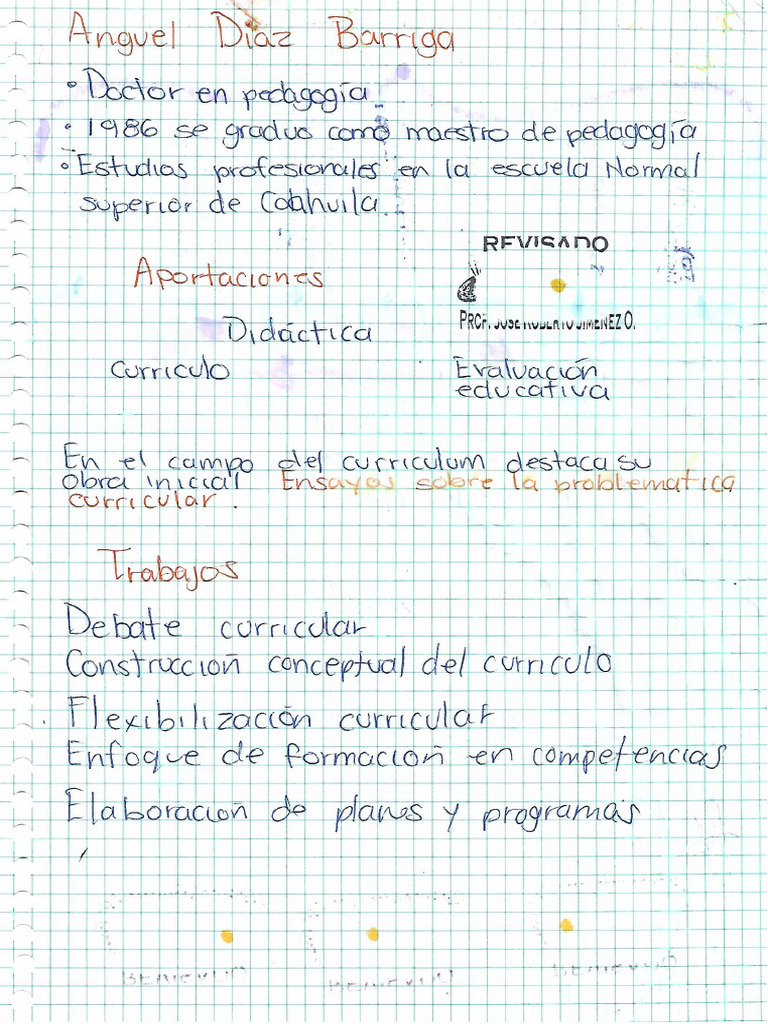 Anguel Díaz Barriga
• Doctor en pedagogía
• 1986 se graduo como maestro de pedagogía
• Estudios profesionales en la escuela Normal
superior de Coahuila.
REVISADO
Aportaciones
PROF. JOSE ROBERTO JIMENEZ O.
Didáctica
curriculo Evaluación
educativa
En el campo del curriculum destaca su
obra inicial Ensayos sobre la problematica
curricular.
Trabajos
Debate curricular
Construcción conceptual del curriculo
Flexibilización curricular
Enfoque de formación en competencias
Elaboración de planes y programas